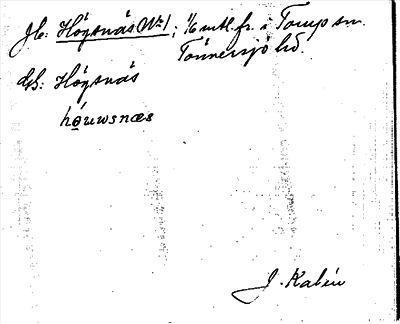 Jb: Högsnäs No 1; 1/6 mtl. fr. i Torup sn.
Tönnersjö hd.
Gb: Högsnäs
hǫuwsnæs
J. Kalén